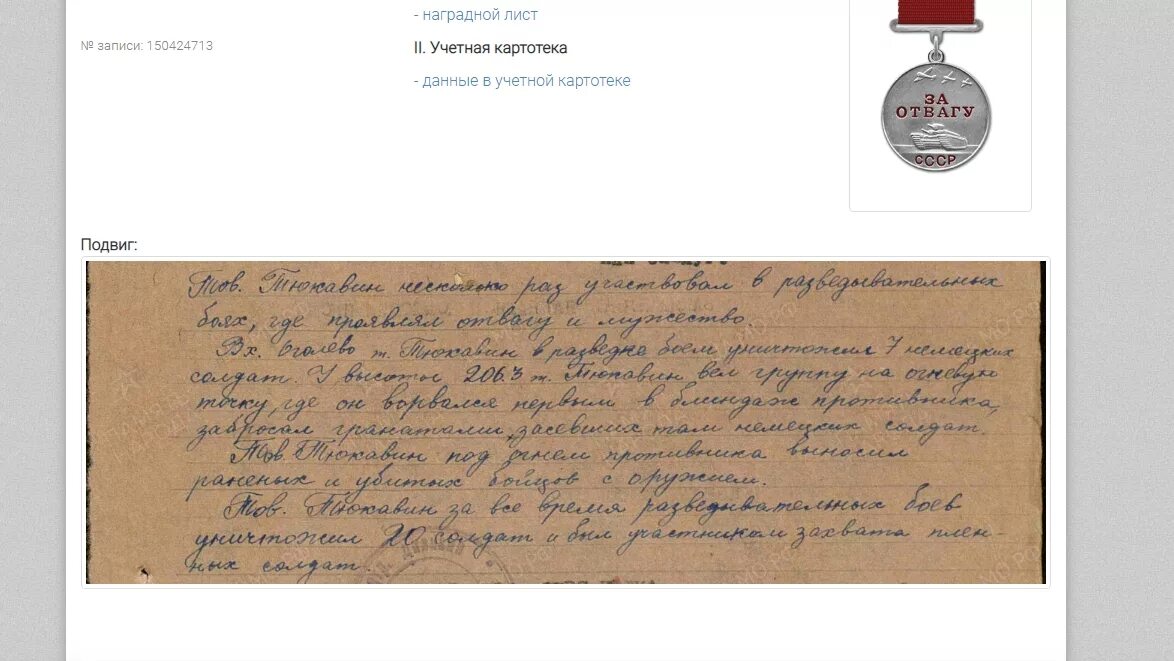 - наградной лист
№ записи: 150424713
II. Учетная картотека
- данные в учетной картотеке
ЗА
ОТВАГУ
СССР
Подвиг:
Тов. Тюкавин несколько раз участвовал в разведывательных
боях, где проявлял отвагу и мужество
В х. Оголево т. Тюкавин в разведке боем уничтожил 7 немецких
солдат. У высоты 206.3 т. Тюкавин вел группу на огневую
точку, где он ворвался первым в блиндаж противника,
забросал гранатами, засевших там немецких солдат.
Тов. Тюкавин под огнем противника выносил
раненых и убитых бойцов с оружием.
Тов. Тюкавин за все время разведывательных боев
уничтожил 20 солдат и был участником захвата плен-
ных солдат